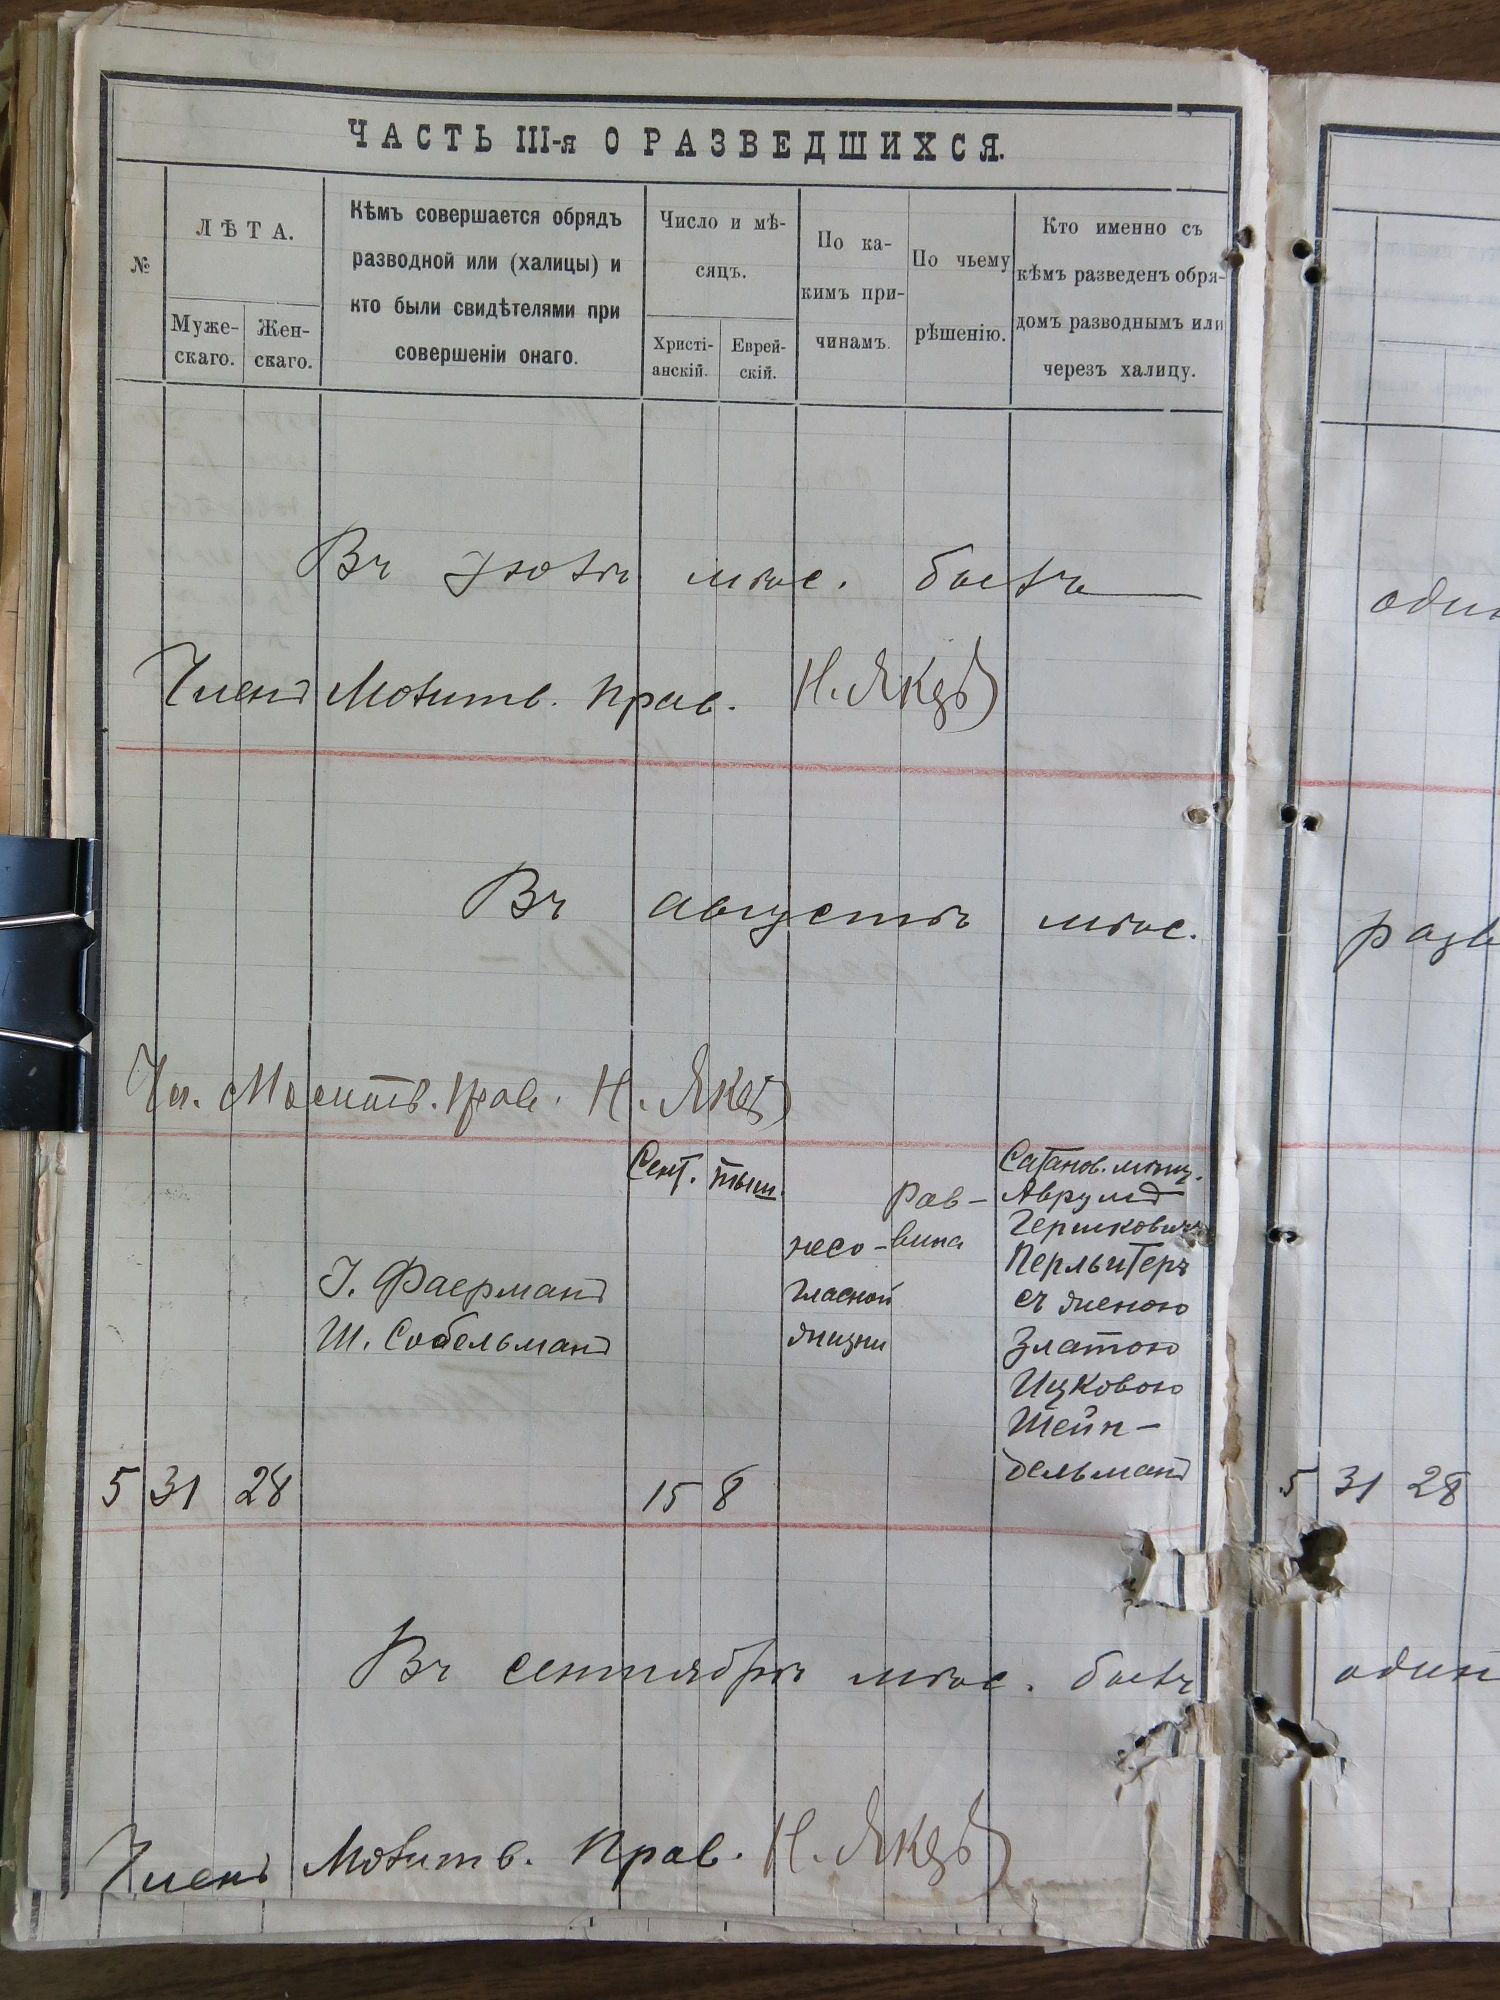 ЧАСТЬ III-я О РАЗВЕДШИХСЯ.
№
ЛѢТА.
Муже-
скаго.
Жен-
скаго.
Кѣмъ совершается обрядъ
разводной или (халицы) и
кто были свидѣтелями при
совершеніи онаго.
Число и мѣ-
сяцъ.
Христі-
анскій.
Еврей-
скій.
По ка-
кимъ при-
чинамъ.
По чьему
рѣшенію.
Кто именно съ
кѣмъ разведенъ обря-
домъ разводнымъ или
черезъ халицу.
Въ іюлѣ мѣс. былъ
Членъ Молитв. Прав. Н. Якубъ
Въ августѣ мѣс.
Чл. Молитв. Прав. Н. Якубъ
5 31 28
І. Фаерманъ
Ш. Собельманъ
Сент. тыш.
15 8
несо-
гласной
жизни
Рав-
вина
Сатанов. мѣщ.
Аврумъ
Гершковичъ
Перльитеръ
съ женою
Златою
Ицковою
Шейн-
дельманъ
Въ сентябрѣ мѣс. былъ
Членъ Молитв. Прав. Н. Якубъ
5 31 28